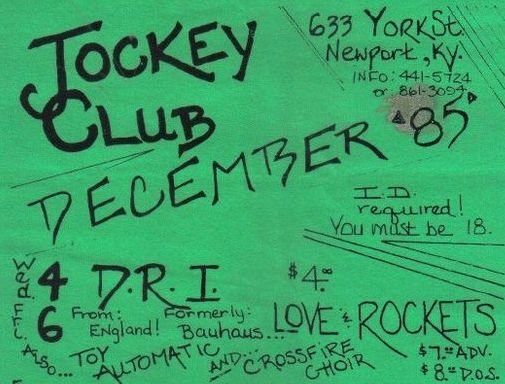 JOCKEY
CLUB
633 YORK St.
Newport, Ky.
INFO: 441-5724
or 861-3094
DECEMBER '85
I.D.
required!
You must be 18.
WED. 4 D.R.I. $4.00
FRI. 6 From: England! Formerly: Bauhaus... LOVE & ROCKETS
ALSO... TOY AUTOMATIC AND... CROSSFIRE CHOIR
$7.00 ADV.
$8.00 D.O.S.